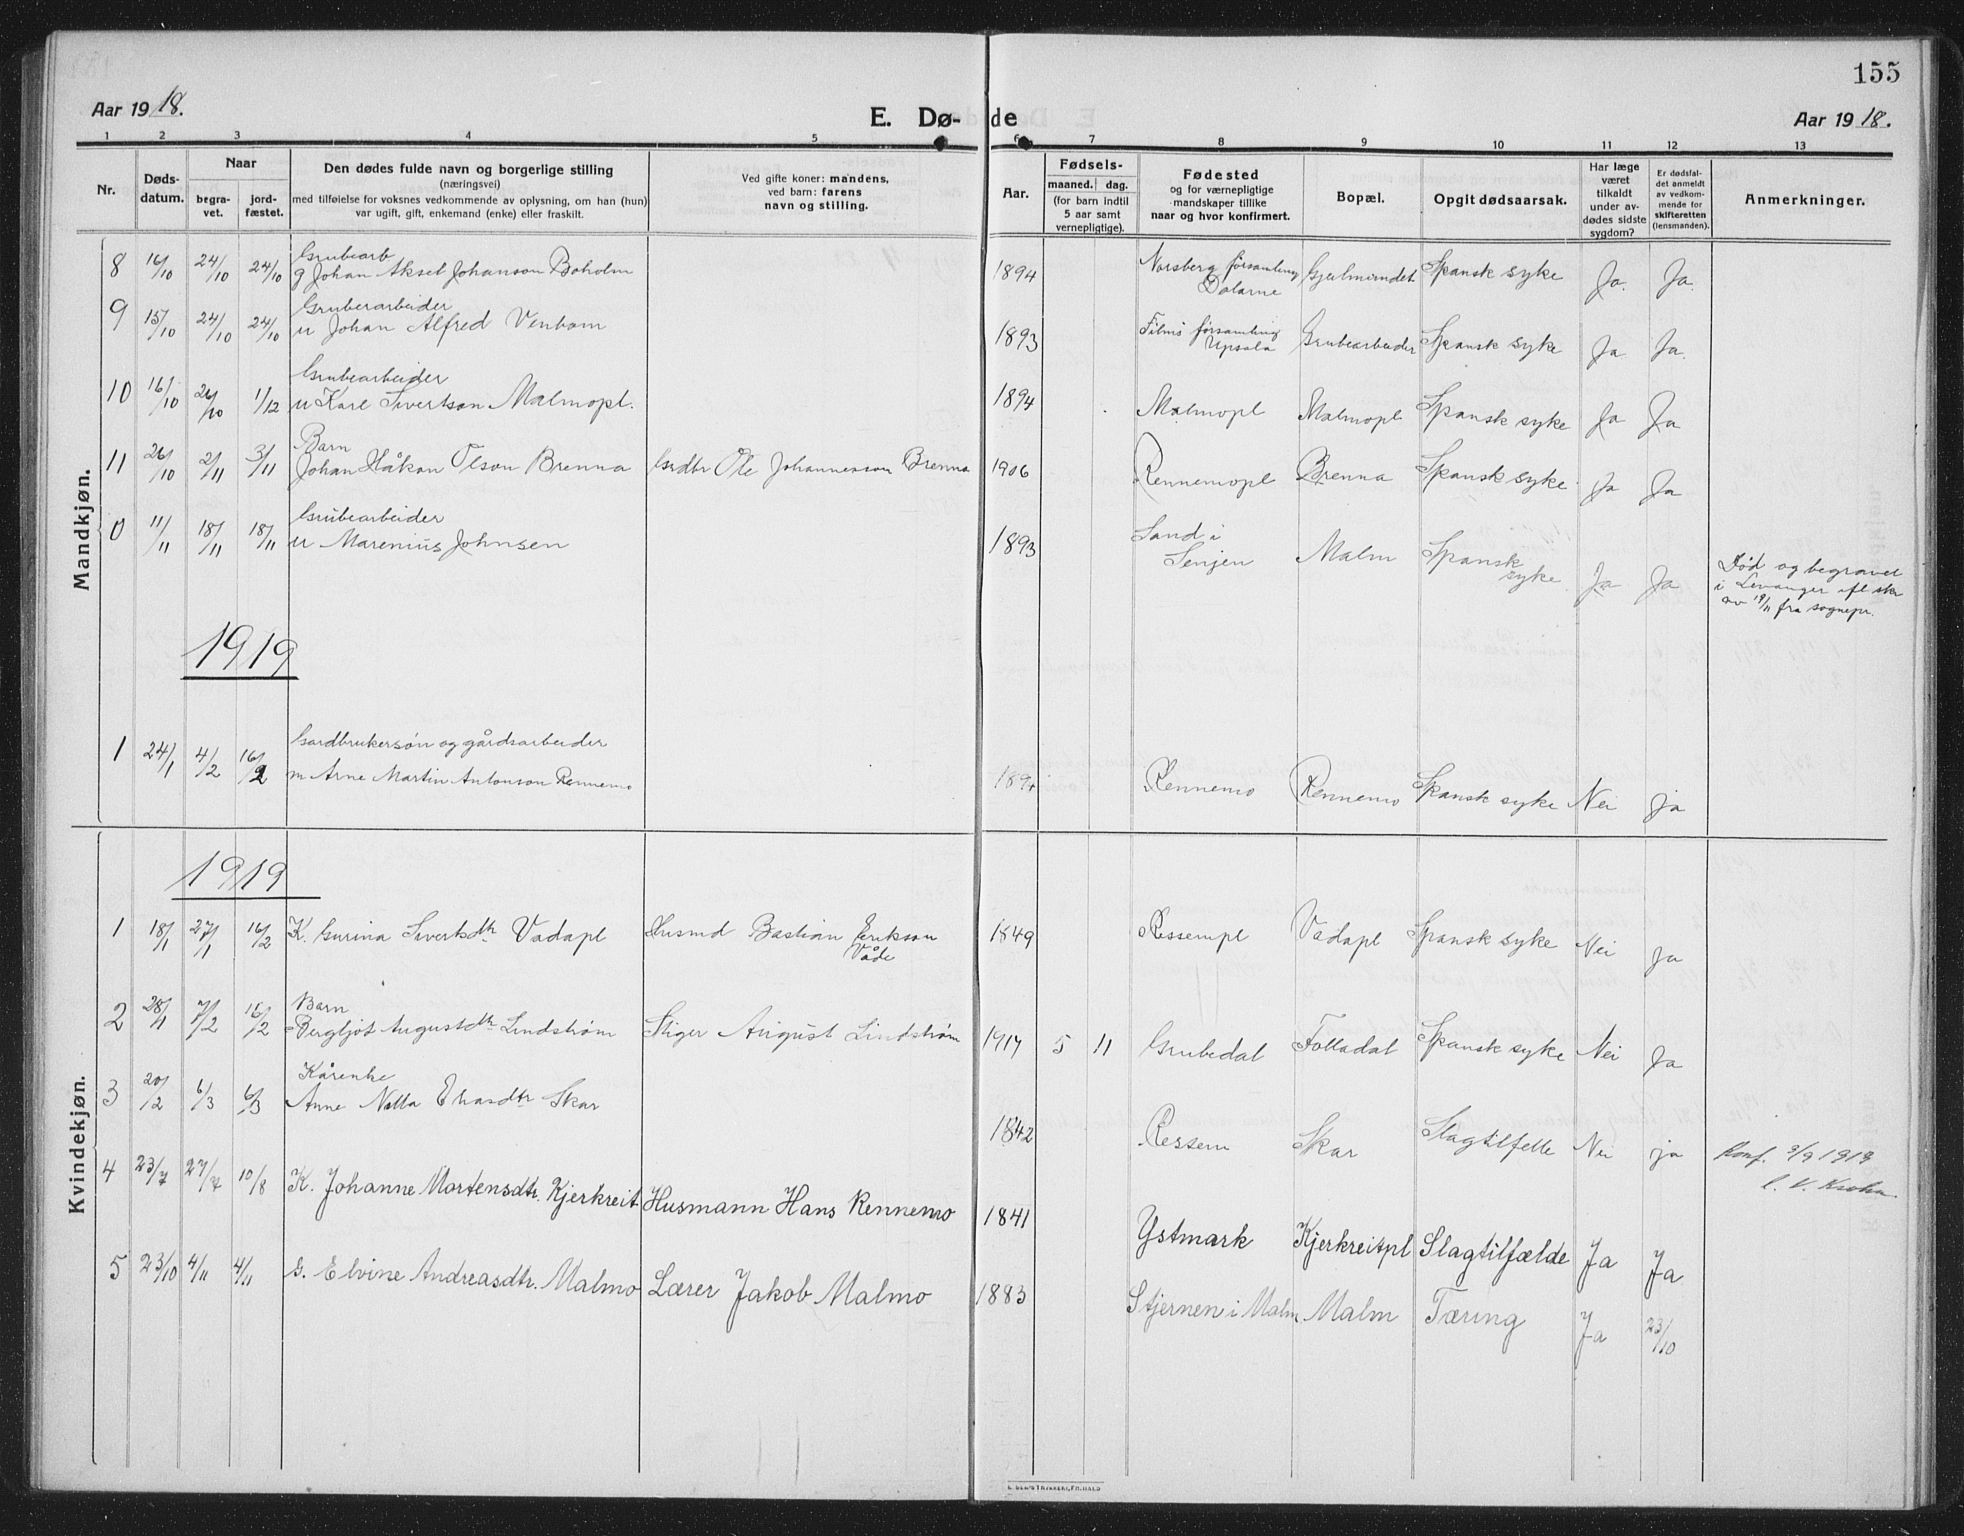 155
Aar 1918. E. Dø- de Aar 1918.
1 2 3 4 5 6 7 8 9 10 11 12 13
Nr. Døds-datum. Naar begra-vet. jord-fæstet. Den dødes fulde navn og borgerlige stilling (næringsvei) med tilføielse for voksnes vedkommende av oplysning, om han (hun) var ugift, gift, enkemand (enke) eller fraskilt. Ved gifte koner: mandens, ved barn: farens navn og stilling. Aar. Fødsels- maaned. dag. (for barn indtil 5 aar samt vernepligtige). Fødested og for værnepligtige mandskaper tillike naar og hvor konfirmert. Bopæl. Opgit dødsaarsak. Har læge været tilkaldt under av-dødes sidste sygdom? Er dødsfal-det anmeldt av vedkom-mende for skifteretten (lensmanden). Anmerkninger.
Mandkjøn.
Grubearb
8 16/10 24/10 24/10 g Johan Aksel Johanson Boholm 1894 Norsberg församling Dalarne Spansk syke Ja. Ja.
Gruberarbeider
9 15/10 24/10 24/10 u Johan Alfred Venbom 1893 Films församling Upsala Grubearbeider Spansk syke Ja Ja.
Grubearbeider
10 16/10 26/10 1/12 u Karl Sivertson Malmopl. 1894 Malmopl Malmopl Spansk syke Ja Ja
Barn
11 26/10 2/11 3/11 Johan Håkon Olson Brenna Grdbr Ole Johannesson Brenna 1906 Rennemopl Brenna Spansk syke Ja Ja
Grubearbeider
0 11/11 18/11 18/11 u Marenius Johnsen 1893 Sand i Senjen Malm Spansk syke Ja Ja Død og begravet
i Levanger efl skr
av 19/11 fra sognepr.
1919
Gardbrukersøn og gårdsarbeider
1 24/1 4/2 16/2 m Arne Martin Antonson Rennemo 1894 Rennemo Rennemo Spansk syke Nei ja
Kvindekjøn.
1919
1 18/1 27/1 16/2 K. Gurina Sivertsdtr Vadapl Husmd Bastian Erikson Våde 1849 Ressempl Vadapl Spansk syke Nei Ja
Barn
2 28/1 7/2 16/2 Bergljot Augustdtr Lindstrøm Stiger August Lindstrøm 1917 5 11 Grubedal Folladal Spansk syke Nei Ja
Kårenke
3 20/2 6/3 6/3 Anne Nella Eliasdtr Skar 1842 Ressem Skar Slagtilfelle Nei ja Konf. 3/9 1919
C. V. Krohn
4 23/7 27/7 10/8 K. Johanne Mortensdtr. Kjerkreit Husmann Hans Rennemo 1841 Ystmark Kjerkreitpl Slagtilfælde Ja Ja
5 23/10 4/11 4/11 G. Elvine Andreasdtr. Malmo Lærer Jakob Malmo 1883 Stjernen i Malm Malm Tæring Ja 23/10